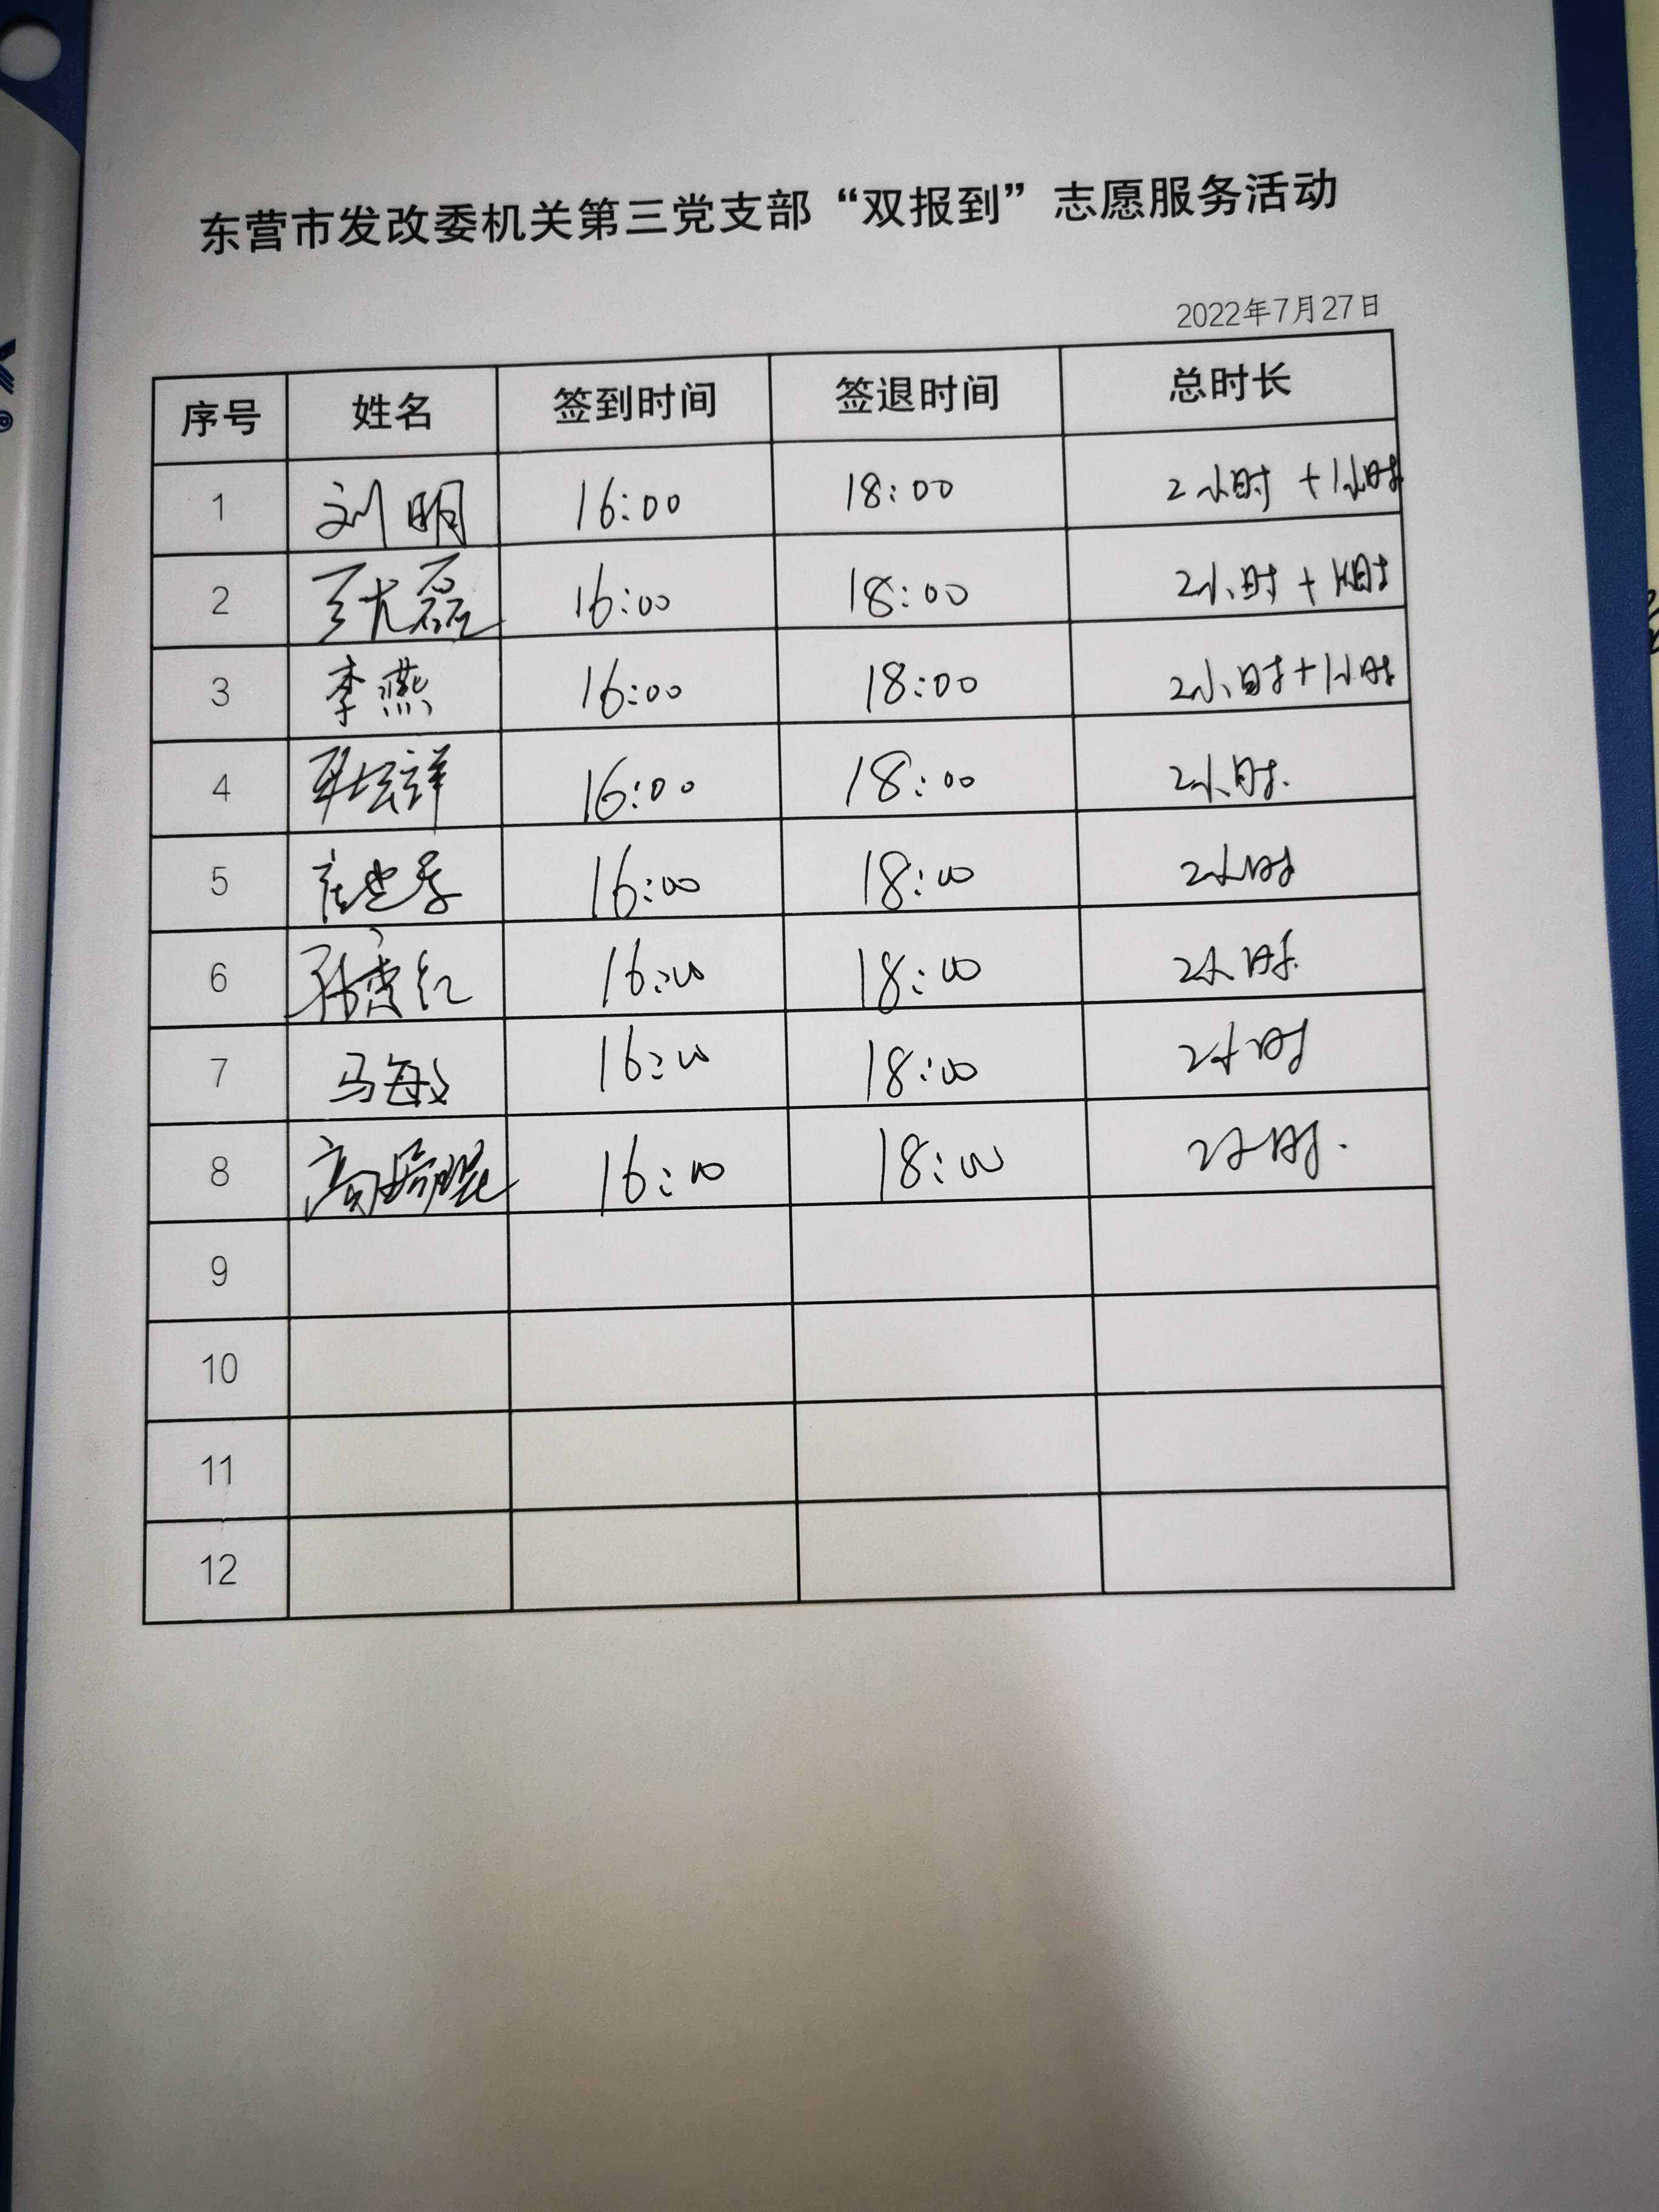 东营市发改委机关第三党支部“双报到”志愿服务活动
2022年7月27日
序号 姓名 签到时间 签退时间 总时长
1 刘明 16:00 18:00 2小时+1小时
2 磊 16:00 18:00 2小时+1小时
3 李燕 16:00 18:00 2小时+1小时
4 祥 16:00 18:00 2小时.
5 16:00 18:00 2小时
6 红 16:00 18:00 2小时.
7 马敏 16:00 18:00 2小时
8 高 16:00 18:00 2小时.
9
10
11
12